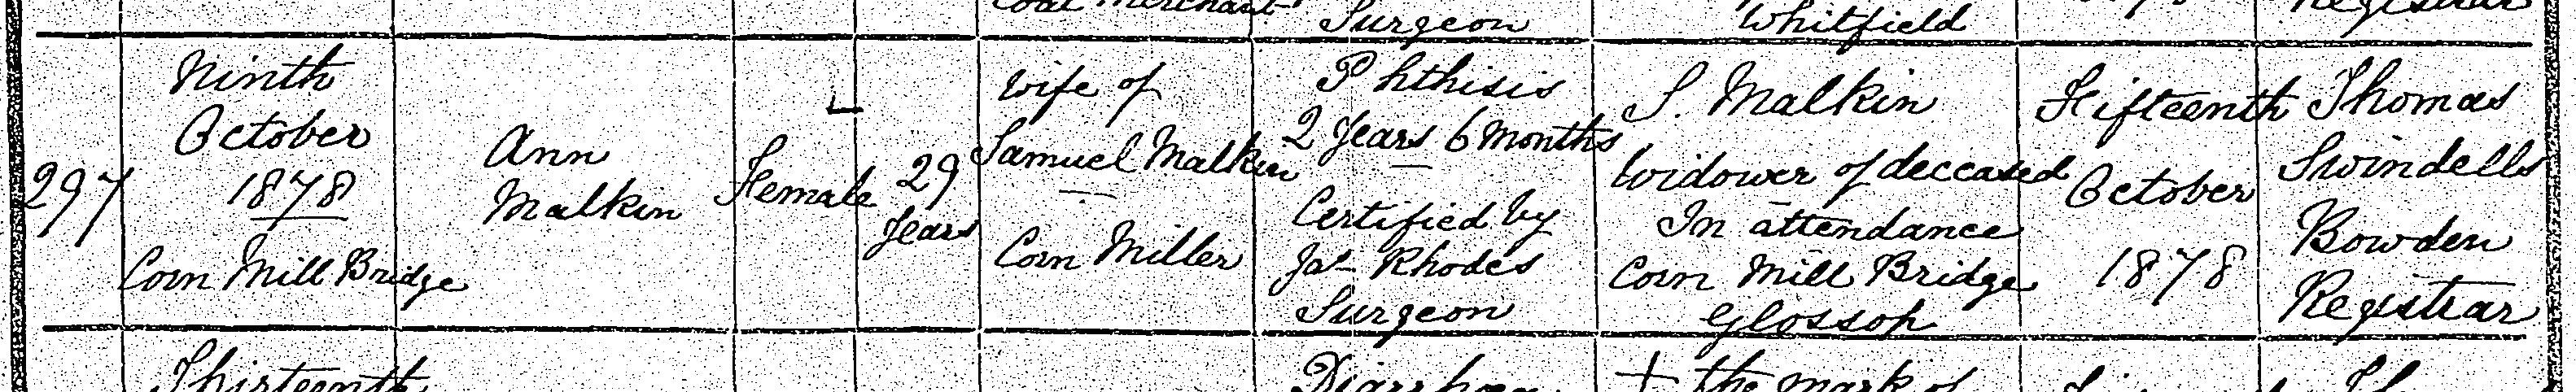 Coal Merchant
Surgeon
Whitfield
Registrar
297
Ninth
October
1878
Corn Mill Bridge
Ann
Malkin
Female
29
Years
Wife of
Samuel Malkin
Corn Miller
Phthisis
2 Years 6 Months
Certified by
Jas Rhodes
Surgeon
S. Malkin
Widower of deceased
In attendance
Corn Mill Bridge
Glossop
Fifteenth
October
1878
Thomas
Swindells
Bowden
Registrar
Thirteenth
Diarrhoea
+ The mark of